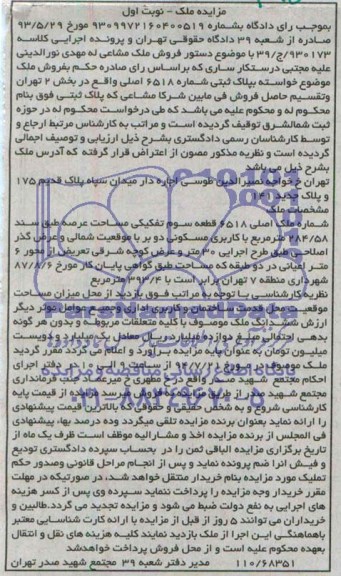 مزایده ملک - نوبت اول
بموجب رای دادگاه بشماره ۹۳۰۹۹۷۲۱۶۰۴۰۰۵۱۹ مورخ ۹۳/۵/۲۹
صادره از شعبه ۳۹ دادگاه حقوقی تهران و پرونده اجرایی کلاسه
۹۳۰۱۷۳/ج/۳۹ با موضوع دستور فروش ملک مشاعی له مهدی نورالدینی
علیه مجتبی درستکار ساری که براساس رای صادره حکم بفروش ملک
موضوع خواسته بپلاک ثبتی شماره ۶۵۱۸ اصلی واقع در بخش ۲ تهران
وتقسیم حاصل فروش فی مابین شرکا مشاعی که پلاک ثبتی فوق بنام
محکوم له و محکوم علیه می باشد که طی درخواست محکوم له در حوزه
ثبت شمالشرق توقیف گردیده است و مراتب به کارشناس مرتبط ارجاع و
توسط کارشناسان رسمی دادگستری بشرح ذیل ارزیابی و توصیف اجمالی
گردیده است و نظریه مذکور مصون از اعتراض قرار گرفته که آدرس ملک
بشرح ذیل می باشد
تهران خ خواجه نصیرالدین طوسی اجاره دار میمان سیاه پلاک قدیم ۱۷۵
و پلاک جدید
مشخصات ملک
شماره ملک اصلی ۶۵۱۸ قطعه سوم تفکیکی مساحت عرصه طبق سند
۲۸۴/۵۸ مترمربع با کاربری مسکونی دو بر با موقعیت شمالی و عرض گذر
اصلاحی طبق طرح اجرایی ۳۰ متر و عرض کوچه شرقی تعریض از محور ۶
متر اعیانی در دو طبقه که مساحت طبق گواهی پایان کار مورخ ۸۷/۸/۶
شهرداری منطقه ۷ تهران برابر است با ۳۹۳/۴ مترمربع
نظریه کارشناسی با توجه به مراتب فوق بازدید از محل میزان مساحت
موقعیت محل قدمت ساختمان و کاربری اداری و جمیع عوامل موثر دیگر
ارزش ششدانگ ملک موصوف با کلیه متعلقات مربوطه و بدون هر گونه
بدهی احتمالی مبلغ دوازده میلیارد ریال معادل یک میلیارد و دویست
میلیون تومان به عنوان پایه مزایده برآورد و اعلام می گردد مقرر گردید
ملک موصوف در مورخ در دفتر اجرای
احکام مجتمع شهید صدر واقع در خ مطهری خ میرعماد جنب فرمانداری
مجتمع شهید صدر از طریق مزایده بفروش برسد مزایده از قیمت پایه
کارشناسی شروع و به شخص حقیقی و حقوقی که بالاترین قیمت پیشنهادی
را ارائه نماید بعنوان برنده مزایده تلقی میگردد وده درصد بها، پیشنهادی
فی المجلس از برنده مزایده اخذ و مشارالیه موظف است ظرف یک ماه از
تاریخ برگزاری مزایده الباقی ثمن را در بحساب سپرده دادگستری تودیع
و فیش انرا ضم پرونده نماید و پس از انجام مراحل قانونی وصدور حکم
تملیک مورد مزایده بنام خریدار منتقل خواهد شد در صورتیکه در مهلت
مقرر خریدار وجه مزایده را پرداخت ننماید سپرده وی پس از کسر هزینه
های اجرایی به نفع دولت ضبط می شود و مزایده تجدید می گردد.طالبین و
خریداران می توانند ۵ روز از قبل از مزایده با ارائه کارت شناسایی معتبر
باهماهنگی این اجرا از ملک بازدید نمایند کلیه هزینه های نقل و انتقال
بعهده محکوم علیه است و از محل فروش پرداخت خواهدشد
۱۱۰/۶۸۳۵۱ مدیر دفتر شعبه ۳۹ مجتمع شهید صدر تهران